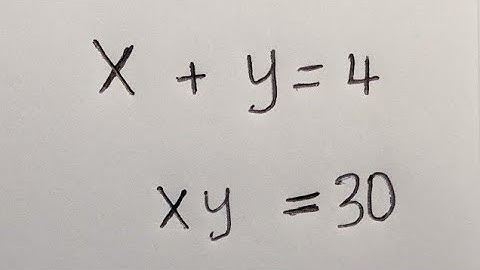 x + y = 4
xy = 30